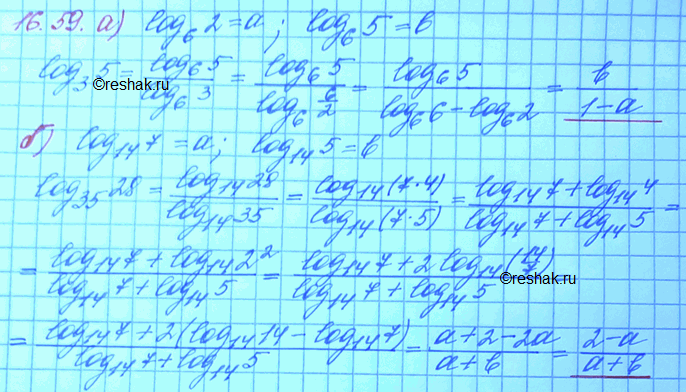 16.59. а) log₆2 = a; log₆5 = b
log₃5 = log₆5 / log₆3 = log₆5 / log₆(6/2) = log₆5 / (log₆6 − log₆2) = b / (1 − a)
©reshak.ru
б) log₁₄7 = a; log₁₄5 = b
log₃₅28 = log₁₄28 / log₁₄35 = log₁₄(7·4) / log₁₄(7·5) = (log₁₄7 + log₁₄4) / (log₁₄7 + log₁₄5) =
= (log₁₄7 + log₁₄2²) / (log₁₄7 + log₁₄5) = (log₁₄7 + 2 log₁₄(14/7)) / (log₁₄7 + log₁₄5)
©reshak.ru
= (log₁₄7 + 2(log₁₄14 − log₁₄7)) / (log₁₄7 + log₁₄5) = (a + 2 − 2a) / (a + b) = (2 − a) / (a + b)